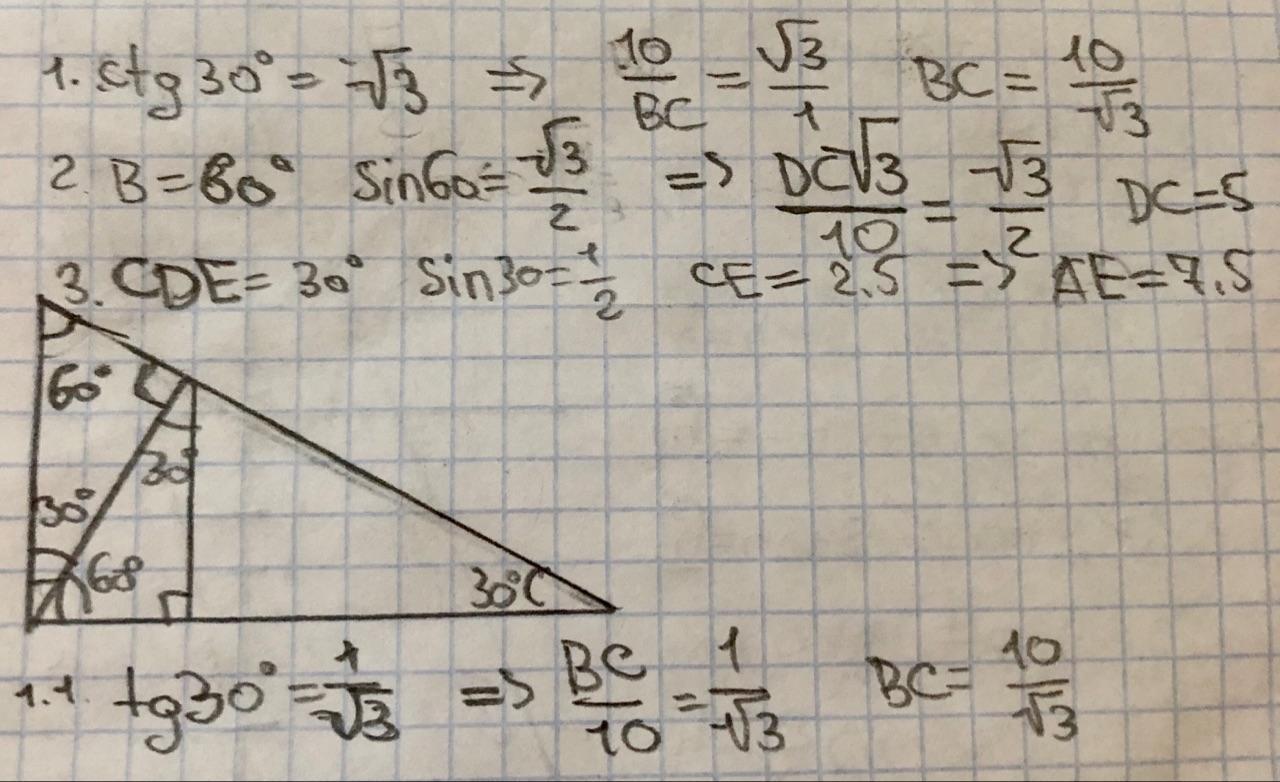 1. ctg30° = √3 => 10/BC = √3/1 BC = 10/√3
2. B = 60° Sin60 = √3/2 => DC√3/10 = √3/2 DC=5
3. CDE = 30° Sin30 = 1/2 CE = 2.5 => AE = 7.5
60°
30°
30°
60°
30°
1.1. tg30° = 1/√3 => BC/10 = 1/√3 BC = 10/√3